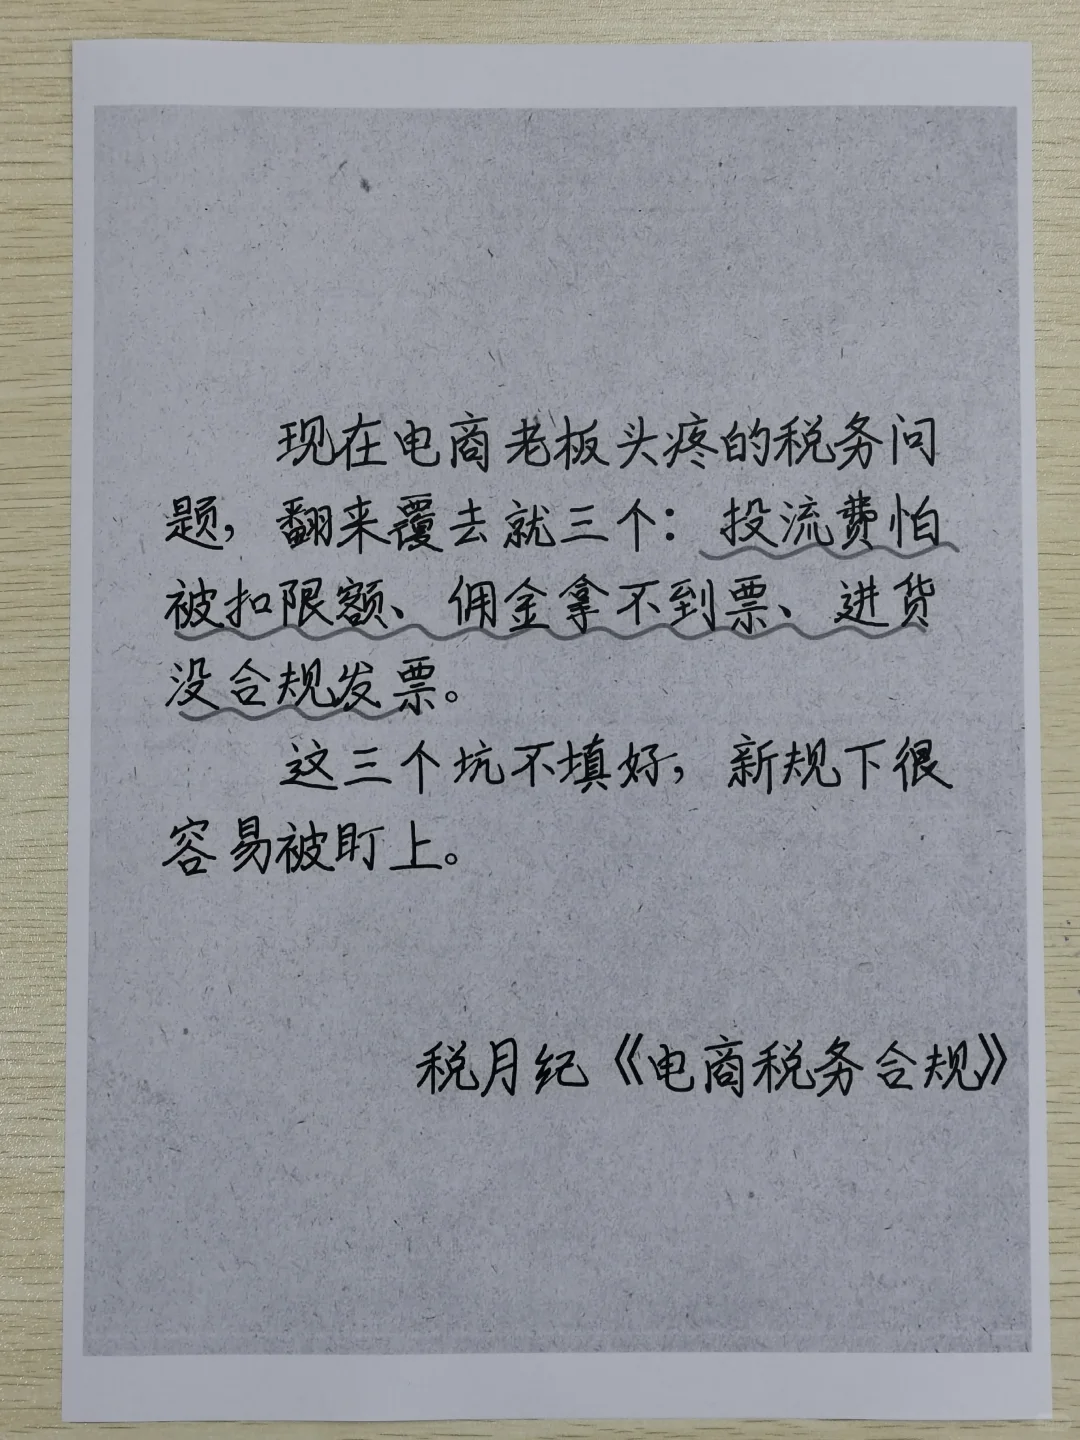 现在电商老板头疼的税务问
题，翻来覆去就三个：投流费怕
被扣限额、佣金拿不到票、进货
没合规发票。
这三个坑不填好，新规下很
容易被盯上。
税月纪《电商税务合规》